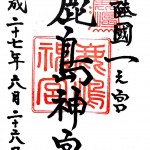 陸國一之宮
鹿島神宮
平成二十七年六月二十六日
鹿嶋神宮